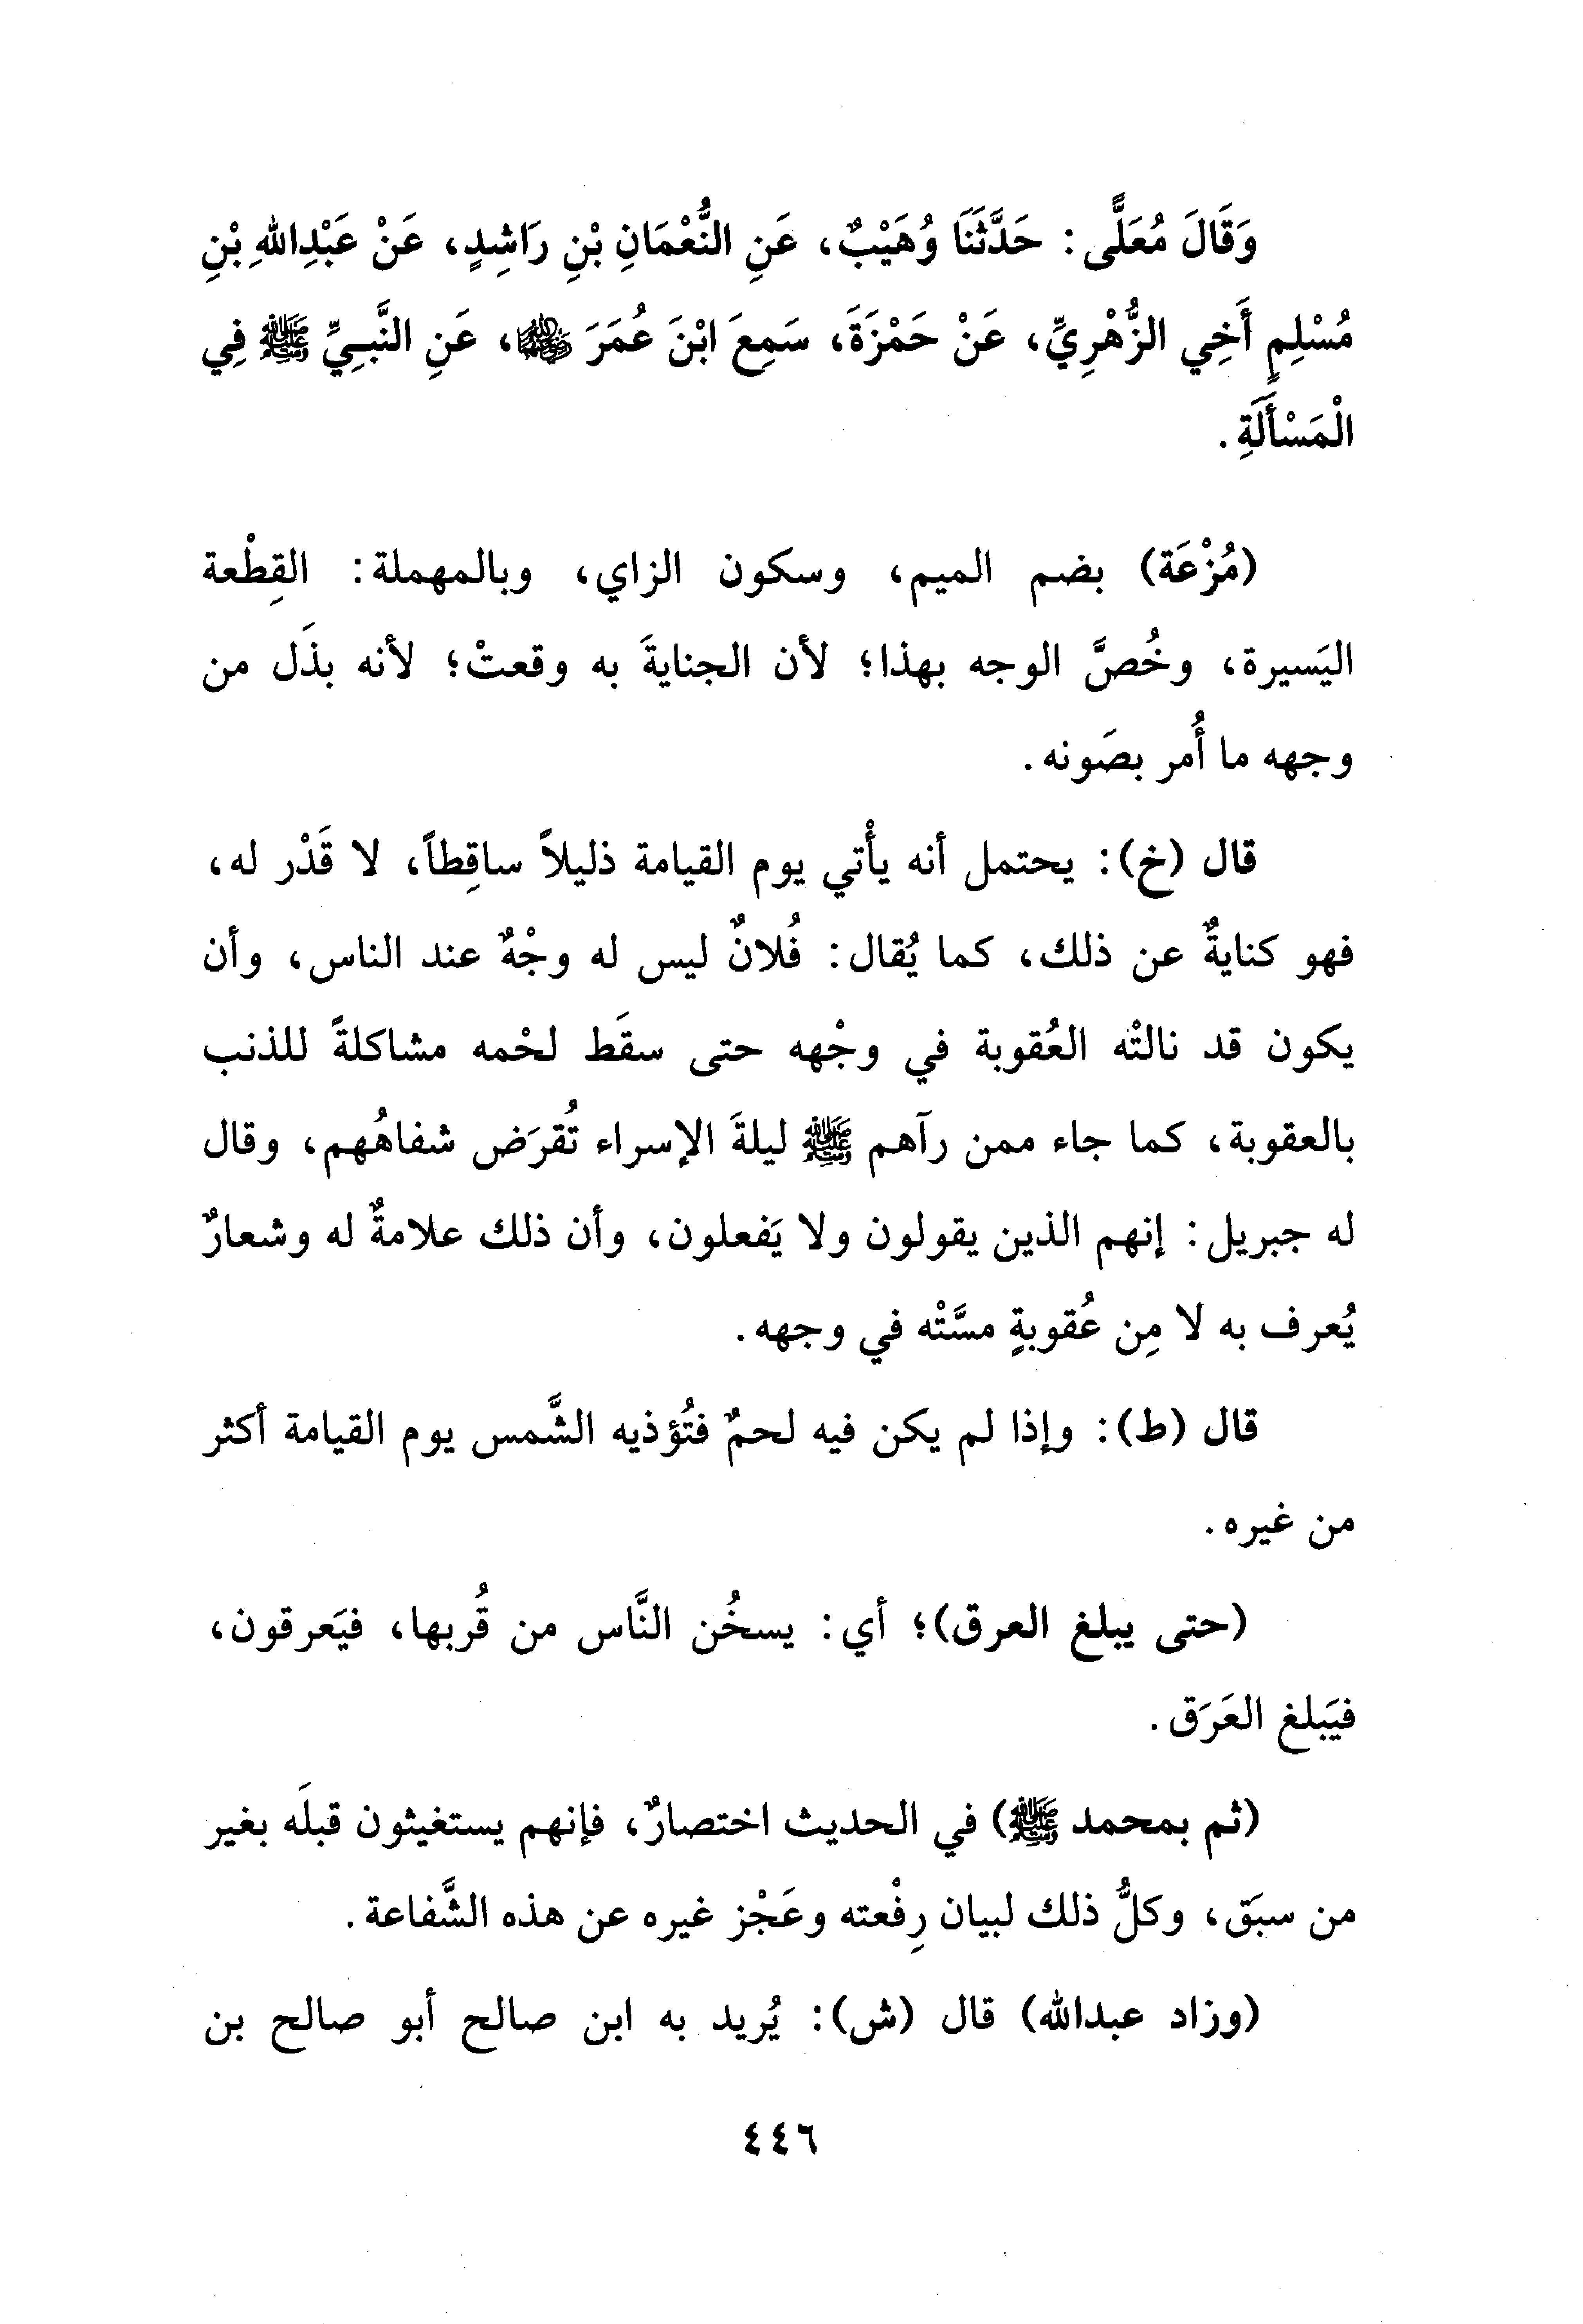 وَقَالَ مُعَلًّى: حَدَّثَنَا وُهَيْبٌ، عَنِ النُّعْمَانِ بْنِ رَاشِدٍ، عَنْ عَبْدِاللهِ بْنِ
مُسْلِمٍ أَخِي الزُّهْرِيِّ، عَنْ حَمْزَةَ، سَمِعَ ابْنَ عُمَرَ رضي الله عنهما، عَنِ النَّبِيِّ ﷺ فِي
الْمَسْأَلَةِ.
(مُزْعَة) بضم الميم، وسكون الزاي، وبالمهملة: القِطْعة
اليَسيرة، وخُصَّ الوجه بهذا؛ لأن الجنايةَ به وقعتْ؛ لأنه بذَل من
وجهه ما أُمر بصَونه.
قال (خ): يحتمل أنه يأْتي يوم القيامة ذليلاً ساقِطاً، لا قَدْر له،
فهو كنايةٌ عن ذلك، كما يُقال: فُلانٌ ليس له وجْهٌ عند الناس، وأن
يكون قد نالتْه العُقوبة في وجْهه حتى سقَط لحْمه مشاكلةً للذنب
بالعقوبة، كما جاء ممن رآهم ﷺ ليلةَ الإسراء تُقرَض شفاهُهم، وقال
له جبريل: إنهم الذين يقولون ولا يَفعلون، وأن ذلك علامةٌ له وشعارٌ
يُعرف به لا مِن عُقوبةٍ مسَّتْه في وجهه.
قال (ط): وإذا لم يكن فيه لحمٌ فتُؤذيه الشَّمس يوم القيامة أكثر
من غيره.
(حتى يبلغ العرق)؛ أي: يسخُن النَّاس من قُربها، فيَعرقون،
فيَبلغ العَرَق.
(ثم بمحمد ﷺ) في الحديث اختصارٌ، فإنهم يستغيثون قبلَه بغير
من سبَق، وكلُّ ذلك لبيان رِفْعته وعَجْز غيره عن هذه الشَّفاعة.
(وزاد عبدالله) قال (ش): يُريد به ابن صالح أبو صالح بن
٤٤٦